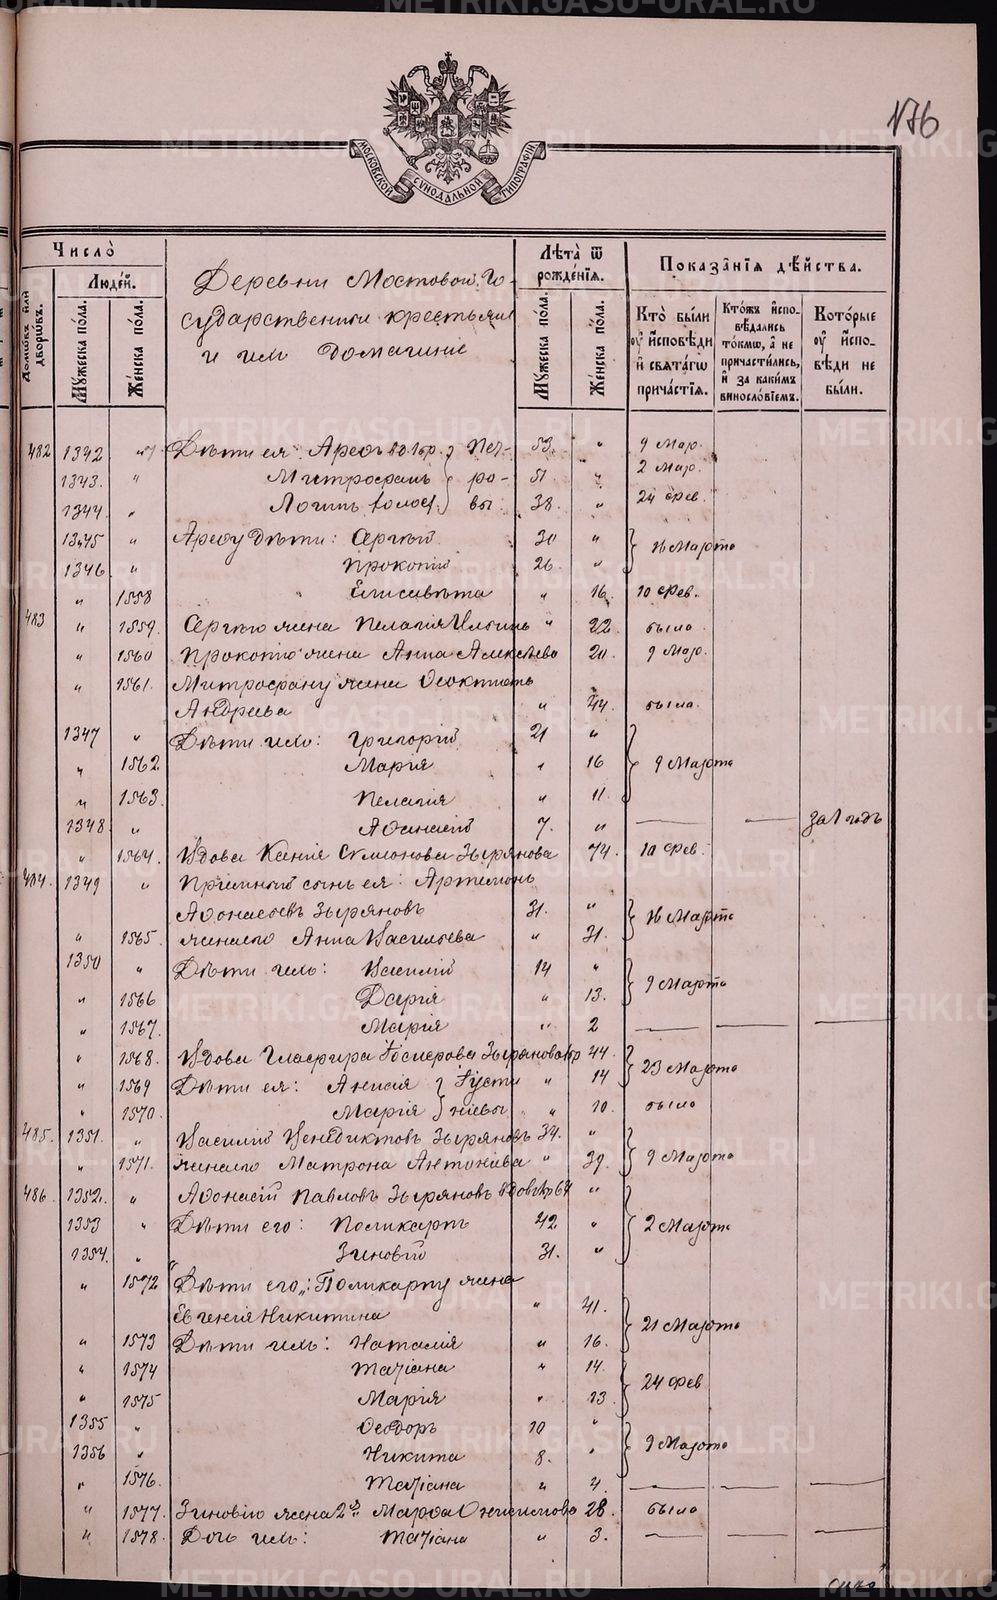 METRIKI.GASO-URAL.RU
176
МОСКОВСКОЙ СѴНОДАЛЬНОЙ ТИПОГРАФИИ
Число̀
Домѡвъ или дворѡвъ.
Людей.
Мꙋжеска пола.
Женска пола.
Деревни Мостовой Го-
сударственніи крестьяни
и ихъ домашніе
Лѣта̀ ѿ рожденїѧ.
Мꙋжеска пола.
Женска пола.
Показанїѧ дѣйства.
Кто̀ были ᲂу҆ и҆сповѣди и҆ свѧтагѡ причастїѧ.
Ктожъ и҆спо-вѣдались токмѡ, а҆ не причастились, и҆ за какимъ винословїемъ.
Которые ᲂу҆ и҆спо-вѣди не были.
482 1342 " Дѣти ея: Ареѳ 53. " 9 Мар.
1343. " Митрофанъ 51 " 2 Мар.
1344. " Логинъ 38. " 24 Фев.
1345 " Ареѳу дѣти: Сергѣй 30 "
1346 " Прокопій 26 " 16 Марта
" 1558 Елисавета " 16. 10 Фев.
483 " 1559. Сергѣю жена Пелагія Ильина " 22. была
" 1560 Прокопію жена Анна Алексѣева 20. 9 Мар.
" 1561. Митрофану жена Ѳеоктиста
Андреева " 44. была.
1347 " Дѣти ихъ: Григорій 21 "
" 1562 Марія " 16 9 Марта
" 1563. Пелагія " 11.
1348 " Аѳанасій 7. " — — за 1 годъ
" 1564. Вдова Ксенія Симеонова Зырянова 74. 10 Фев.
484. 1349 " Пріемный сынъ ея: Артемонъ
Аѳонасьевъ Зыряновъ 31. " 16 Марта
" 1565. жена его Анна Васильева " 31.
1350 " Дѣти ихъ: Василій 14 "
" 1566 Дарія " 13. 9 Марта
" 1567. Марія " 2 — — —
" 1568. Вдова Гласфира Зырянова 44. 23 Марта
" 1569 Дѣти ея: Анисія } Густи- " 14
" 1570. Марія } ніевы " 10. была
485. 1351. " Василій Венедиктовъ Зыряновъ 34. "
" 1571. Жена его Матрона Антонова " 39. 9 Марта
486. 1352. " Аѳонасій Павловъ Зыряновъ 64 "
1353 " Дѣти его: Поликарпъ 42 " 2 Марта
1354. " Зиновій 31. "
" 1572 Дѣти его: Поликарпу жена
Евгенія Никитина " 41. 21 Марта
" 1573 Дѣти ихъ: Наталія " 16.
" 1574 Татіана " 14. 24 Фев
" 1575 Марія " 13
1355 " Ѳеодоръ 10 "
1356 " Никита 8. " 9 Марта
" 1576. Татіана " 4. — — —
" 1577. Зиновію жена Марѳа Онисимова 28. была
" 1578. Дочь ихъ: Татіана " 3. — — —